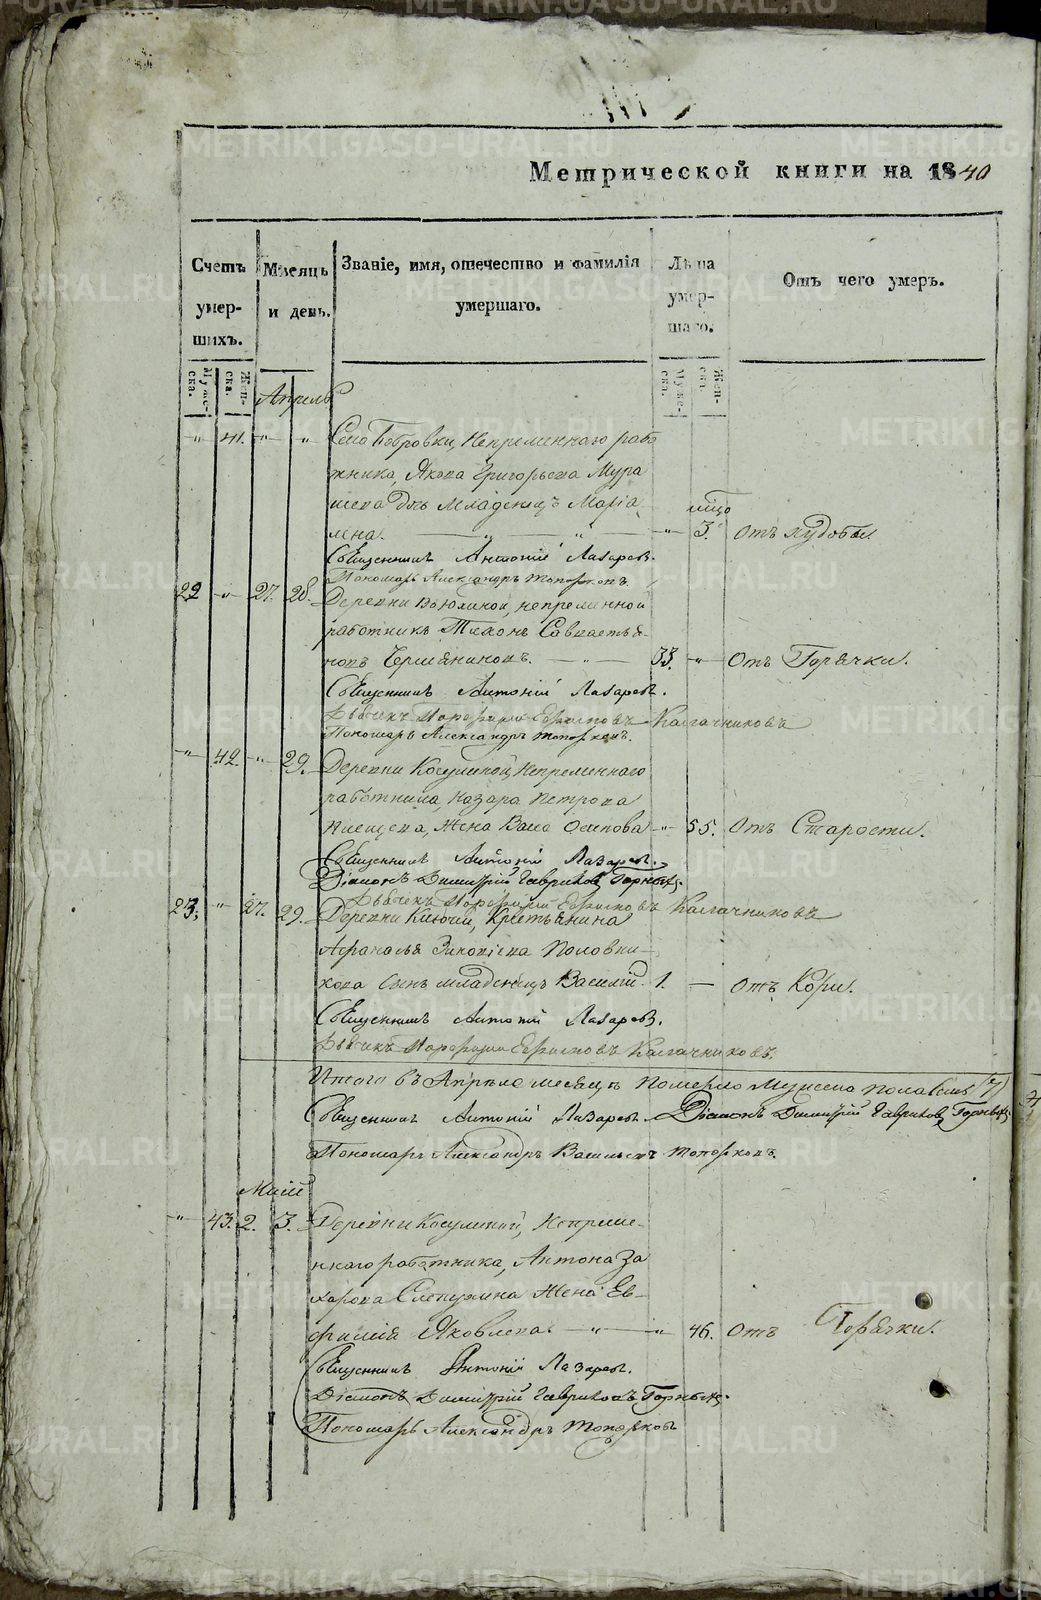 Метрической книги на 1840
Счетъ умершихъ.
Мужеска.
Женска.
Мѣсяцъ и день.
Званіе, имя, отечество и фамилія умершаго.
Лѣта умершаго.
Мужеска.
Женска.
Отъ чего умеръ.
Апрель
" 41. " " Села Бобровки, Непременнаго рабо
тника, Якова Григорьева Мура
шева дочь младенецъ Маріа
мна. " 3. Отъ худобы.
Священникъ Антоній Лазаревъ.
Пономарь Александръ Топорковъ.
22 " 27. 28. Деревни Вьюхиной, непременной
работникъ Тихонъ Савастья-
новъ Чермяниновъ. " 33. " Отъ Горячки.
Священникъ Антоній Лазаревъ.
Дьячекъ Порфирій Калачниковъ
Пономарь Александръ Топорковъ.
" 42. " 29. Деревни Косулиной, Непременнаго
работника, Назара Петрова
Жена Васса Осипова " 55. Отъ Старости.
Священникъ Антоній Лазаревъ.
Діаконъ Димитрій Гавриловъ Горныхъ.
Дьячекъ Порфирій Калачниковъ
23. " 27. 29. Деревни Ключей, Крестьянина
Афанасья Зиновіева Половни
кова Сынъ младенецъ Василій. 1. Отъ Кори.
Священникъ Антоній Лазаревъ.
Дьячекъ Порфирій Калачниковъ.
Итого въ Апрѣле месяцѣ Померло Мужеска пола (7)
Священникъ Антоній Лазаревъ Діаконъ Димитрій Гавриловъ Горныхъ
Пономарь Александръ Васильевъ Топорковъ.
Маій
" 43. 2. 3. Деревни Косулиной, Непреме-
ннаго работника, Антона За
харова Слепухина Жена Ев-
фимія Яковлева. " " 46. Отъ Горячки.
Священникъ Антоній Лазаревъ.
Діаконъ Димитрій Гавриловъ Горныхъ.
Пономарь Александръ Топорковъ
METRIKI.GASO-URAL.RU